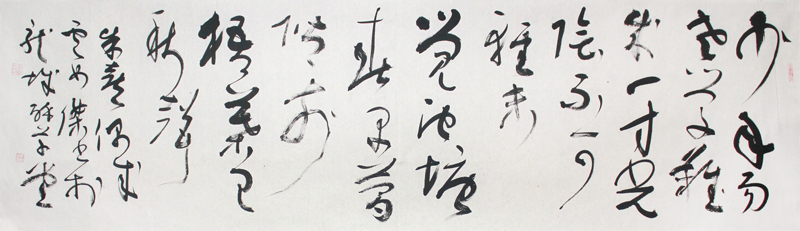 少年易
老學難
成一寸光
陰不可
輕未
覺池塘
春草夢
階前
梧葉已
秋聲
朱熹偶成
傑書於
龍城醉草堂